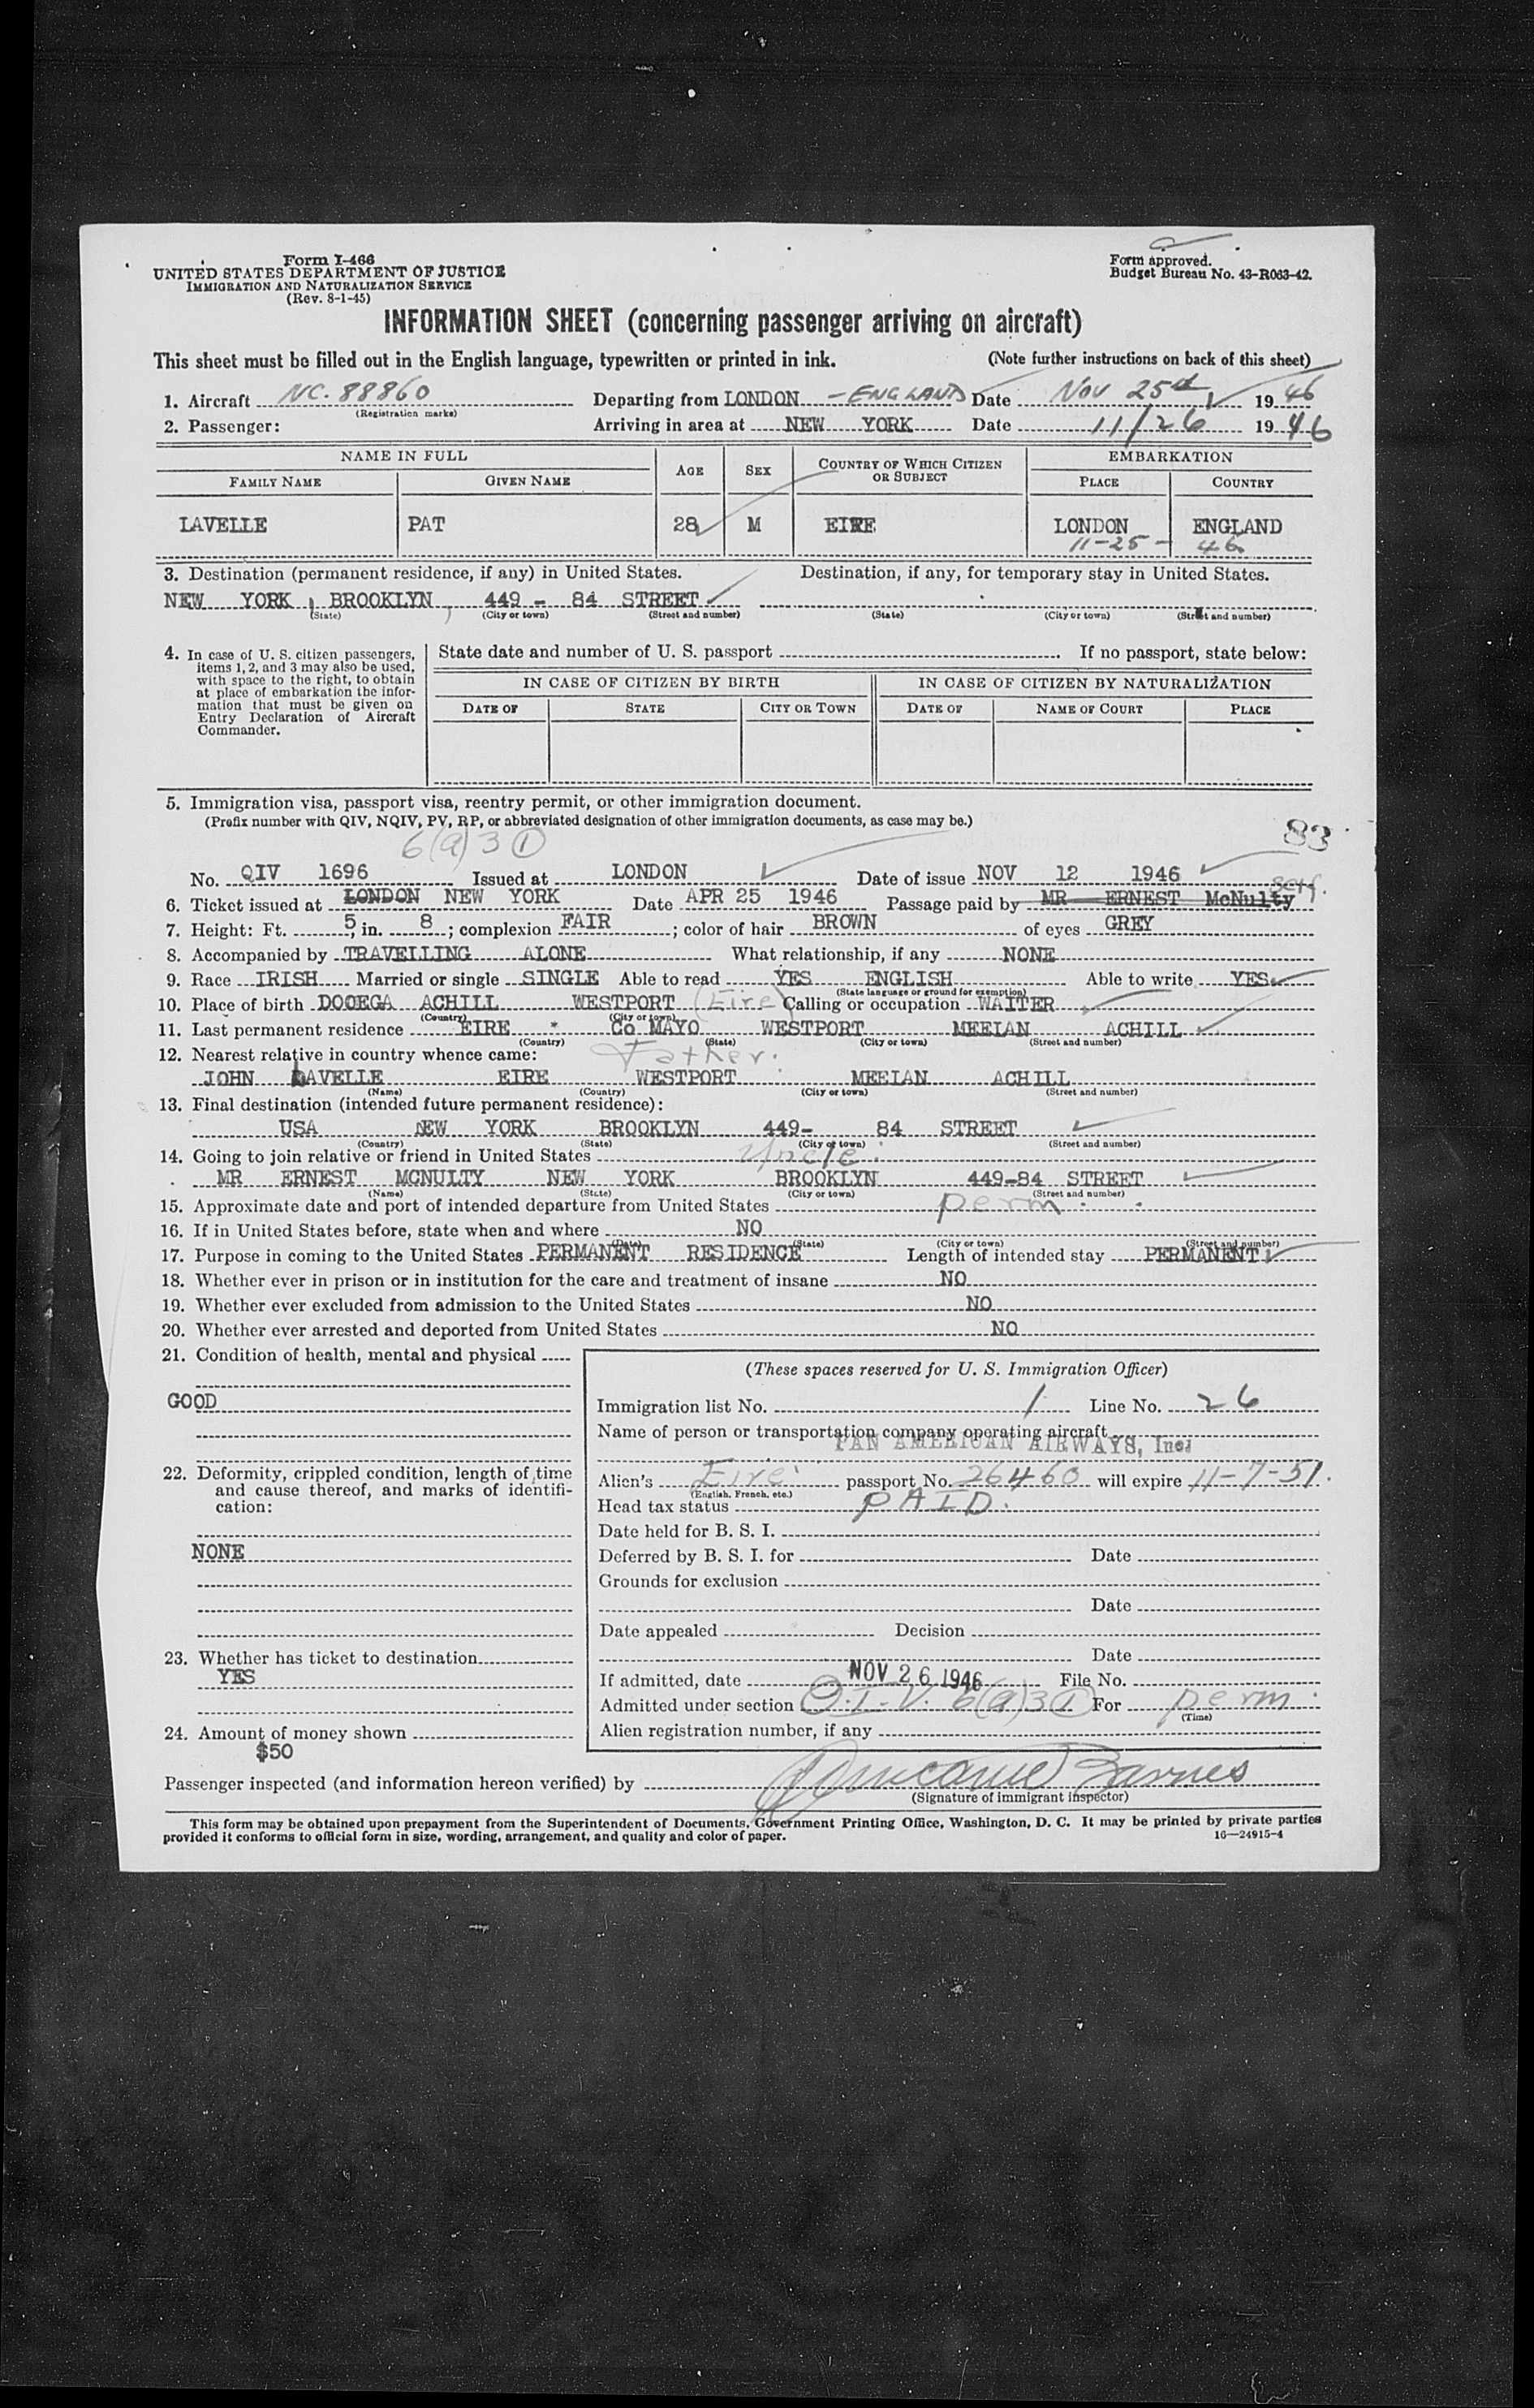 Form I-466
UNITED STATES DEPARTMENT OF JUSTICE
IMMIGRATION AND NATURALIZATION SERVICE
(Rev. 8-1-45)
Form approved.
Budget Bureau No. 43-R063-42.
INFORMATION SHEET (concerning passenger arriving on aircraft)
This sheet must be filled out in the English language, typewritten or printed in ink. (Note further instructions on back of this sheet)
1. Aircraft NC-88860 Departing from LONDON - ENGLAND Date Nov 25th 1946
(Registration marks)
2. Passenger: Arriving in area at NEW YORK Date 11/26 1946
NAME IN FULL AGE SEX COUNTRY OF WHICH CITIZEN OR SUBJECT EMBARKATION
FAMILY NAME GIVEN NAME PLACE COUNTRY
LAVELLE PAT 28 M EIRE LONDON ENGLAND
11-25-46
3. Destination (permanent residence, if any) in United States. Destination, if any, for temporary stay in United States.
NEW YORK, BROOKLYN, 449 - 84 STREET
(State) (City or town) (Street and number) (State) (City or town) (Street and number)
4. In case of U. S. citizen passengers, items 1, 2, and 3 may also be used, with space to the right, to obtain at place of embarkation the information that must be given on Entry Declaration of Aircraft Commander.
State date and number of U. S. passport If no passport, state below:
IN CASE OF CITIZEN BY BIRTH IN CASE OF CITIZEN BY NATURALIZATION
DATE OF STATE CITY OR TOWN DATE OF NAME OF COURT PLACE
5. Immigration visa, passport visa, reentry permit, or other immigration document.
(Prefix number with QIV, NQIV, PV, RP, or abbreviated designation of other immigration documents, as case may be.)
6(a)3 ① 83
No. QIV 1696 Issued at LONDON Date of issue NOV 12 1946
self.
6. Ticket issued at LONDON NEW YORK Date APR 25 1946 Passage paid by MR ERNEST McNulty
7. Height: Ft. 5, in. 8; complexion FAIR; color of hair BROWN of eyes GREY
8. Accompanied by TRAVELLING ALONE What relationship, if any NONE
9. Race IRISH Married or single SINGLE Able to read YES ENGLISH Able to write YES
(State language or ground for exemption)
10. Place of birth DOOEGA ACHILL WESTPORT (Eire) Calling or occupation WAITER
(Country) (City or town)
11. Last permanent residence EIRE Co MAYO WESTPORT MEEIAN ACHILL
(Country) (State) (City or town) (Street and number)
12. Nearest relative in country whence came: Father.
JOHN LAVELLE EIRE WESTPORT MEEIAN ACHILL
(Name) (Country) (City or town) (Street and number)
13. Final destination (intended future permanent residence):
USA NEW YORK BROOKLYN 449- 84 STREET
(Country) (State) (City or town) (Street and number)
14. Going to join relative or friend in United States Uncle.
MR ERNEST MCNULTY NEW YORK BROOKLYN 449-84 STREET
(Name) (State) (City or town) (Street and number)
15. Approximate date and port of intended departure from United States perm.
16. If in United States before, state when and where NO
(Date) (State) (City or town) (Street and number)
17. Purpose in coming to the United States PERMANENT RESIDENCE Length of intended stay PERMANENT
18. Whether ever in prison or in institution for the care and treatment of insane NO
19. Whether ever excluded from admission to the United States NO
20. Whether ever arrested and deported from United States NO
21. Condition of health, mental and physical
GOOD
22. Deformity, crippled condition, length of time and cause thereof, and marks of identification:
NONE
23. Whether has ticket to destination
YES
24. Amount of money shown
$50
(These spaces reserved for U. S. Immigration Officer)
Immigration list No. 1 Line No. 26
Name of person or transportation company operating aircraft
PAN AMERICAN AIRWAYS, Inc.
Alien's Eire passport No. 26460 will expire 11-7-51.
(English, French, etc.)
Head tax status PAID.
Date held for B. S. I.
Deferred by B. S. I. for Date
Grounds for exclusion
Date
Date appealed Decision
Date
If admitted, date NOV 26 1946 File No.
Admitted under section Q.I.V. 6(a)3 ① For perm.
(Time)
Alien registration number, if any
Passenger inspected (and information hereon verified) by Barnes
(Signature of immigrant inspector)
This form may be obtained upon prepayment from the Superintendent of Documents, Government Printing Office, Washington, D. C. It may be printed by private parties
provided it conforms to official form in size, wording, arrangement, and quality and color of paper. 16—24915-4